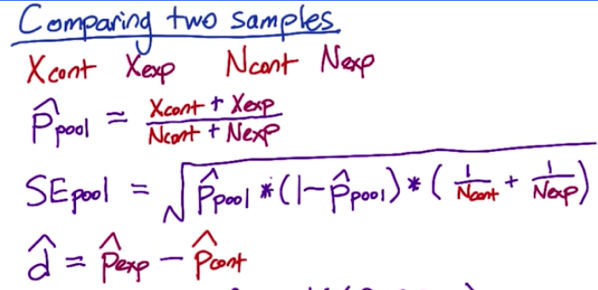 Comparing two samples
Xcont Xexp Ncont Nexp
p̂pool = (Xcont + Xexp) / (Ncont + Nexp)
SEpool = √(p̂pool * (1-p̂pool) * (1/Ncont + 1/Nexp))
d̂ = p̂exp - p̂cont